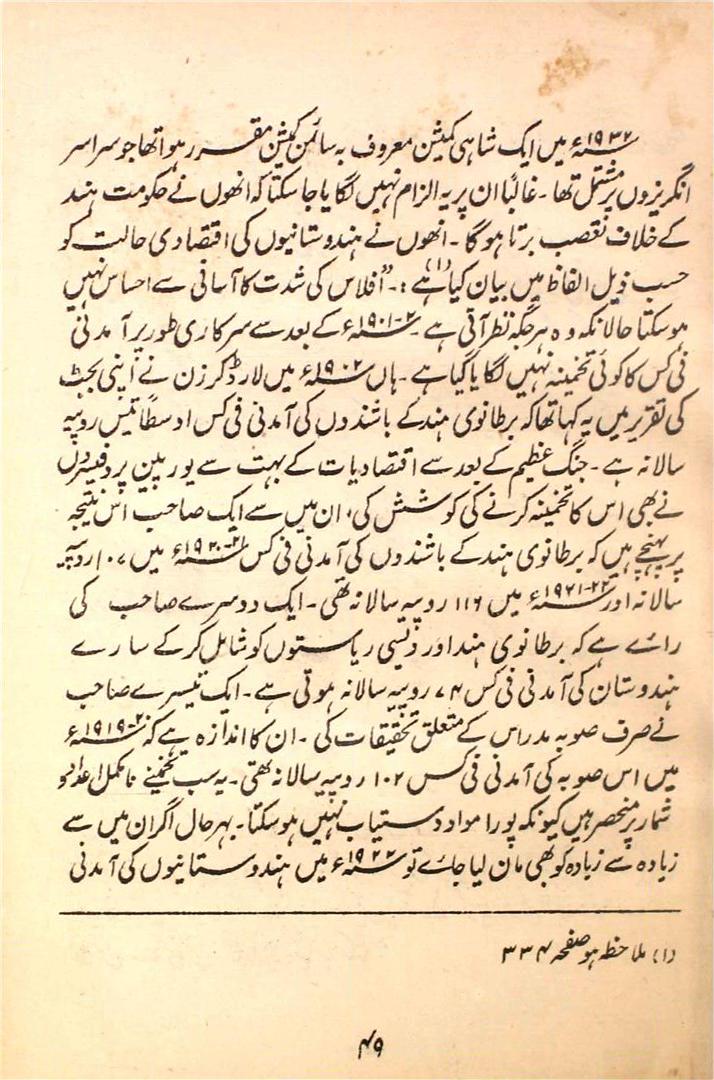 ۱۹۳۲ء میں ایک شاہی کمیشن معروف بہ سائمن کمیشن مقرر ہوا تھا جو سراسر
انگریزوں پر مشتمل تھا۔ غالباً ان پر یہ الزام نہیں لگایا جا سکتا کہ انھوں نے حکومت ہند
کے خلاف تعصب برتا ہوگا۔ انھوں نے ہندوستانیوں کی اقتصادی حالت کو
حسب ذیل الفاظ میں بیان کیا(۱) ہے :۔ "افلاس کی شدت کا آسانی سے احساس نہیں
ہو سکتا حالانکہ وہ ہر جگہ نظر آتی ہے۔ ۲-۱۹۰۱ء کے بعد سے سرکاری طور پر آمدنی
فی کس کا کوئی تخمینہ نہیں لگایا گیا ہے۔ ہاں ۱۹۰۲ء میں لارڈ کرزن نے اپنی بجٹ
کی تقریر میں یہ کہا تھا کہ برطانوی ہند کے باشندوں کی آمدنی فی کس اوسطاً تیس روپیہ
سالانہ ہے۔ جنگ عظیم کے بعد سے اقتصادیات کے بہت سے یورپین پروفیسروں
نے بھی اس کا تخمینہ کرنے کی کوشش کی، ان میں سے ایک صاحب اس نتیجہ
پر پہنچے ہیں کہ برطانوی ہند کے باشندوں کی آمدنی فی کس ۲۱-۱۹۲۰ء میں ۱۰۷ روپیہ
سالانہ اور ۲۲-۱۹۲۱ء میں ۱۱۶ روپیہ سالانہ تھی۔ ایک دوسرے صاحب کی
رائے ہے کہ برطانوی ہند اور دیسی ریاستوں کو شامل کرکے سارے
ہندوستان کی آمدنی فی کس ۷۴ روپیہ سالانہ ہوتی ہے۔ ایک تیسرے صاحب
نے صرف صوبہ مدراس کے متعلق تحقیقات کی۔ ان کا اندازہ ہے کہ ۲۰-۱۹۱۹ء
میں اس صوبہ کی آمدنی فی کس ۱۰۲ روپیہ سالانہ تھی۔ یہ سب تخمینے نامکمل اعداد و
شمار پر منحصر ہیں کیونکہ پورا مواد دستیاب نہیں ہو سکتا۔ بہرحال اگر ان میں سے
زیادہ سے زیادہ کو بھی مان لیا جائے تو ۱۹۲۲ء میں ہندوستانیوں کی آمدنی
(۱) ملاحظہ ہو صفحہ ۳۳۴
۴۹